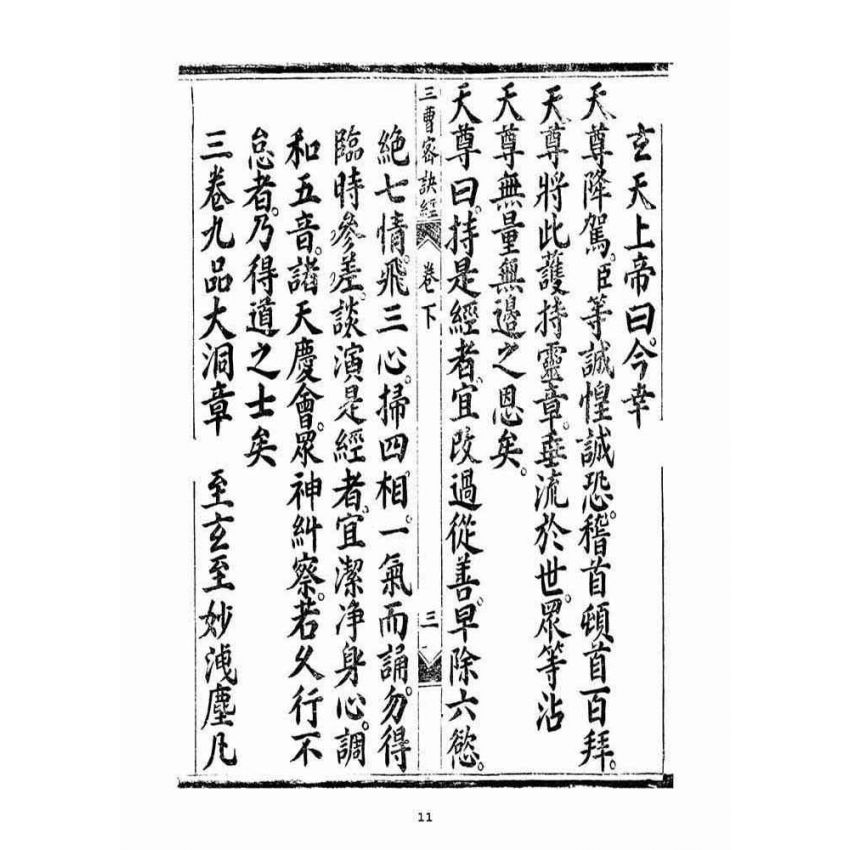 玄天上帝曰。今幸
天尊降駕。臣等誠惶誠恐。稽首頓首百拜。
天尊將此護持靈章。垂流於世。眾等沾
天尊無量無邊之恩矣。
天尊曰。持是經者。宜改過從善。早除六慾。
三曹密訣經 卷下 三
絶七情。飛三心。掃四相。一氣而誦。勿得
臨時參差。談演是經者。宜潔净身心。調
和五音。諸天慶會。眾神糾察。若久行不
怠者。乃得道之士矣
三卷九品大洞章 至玄至妙洩塵凡
11